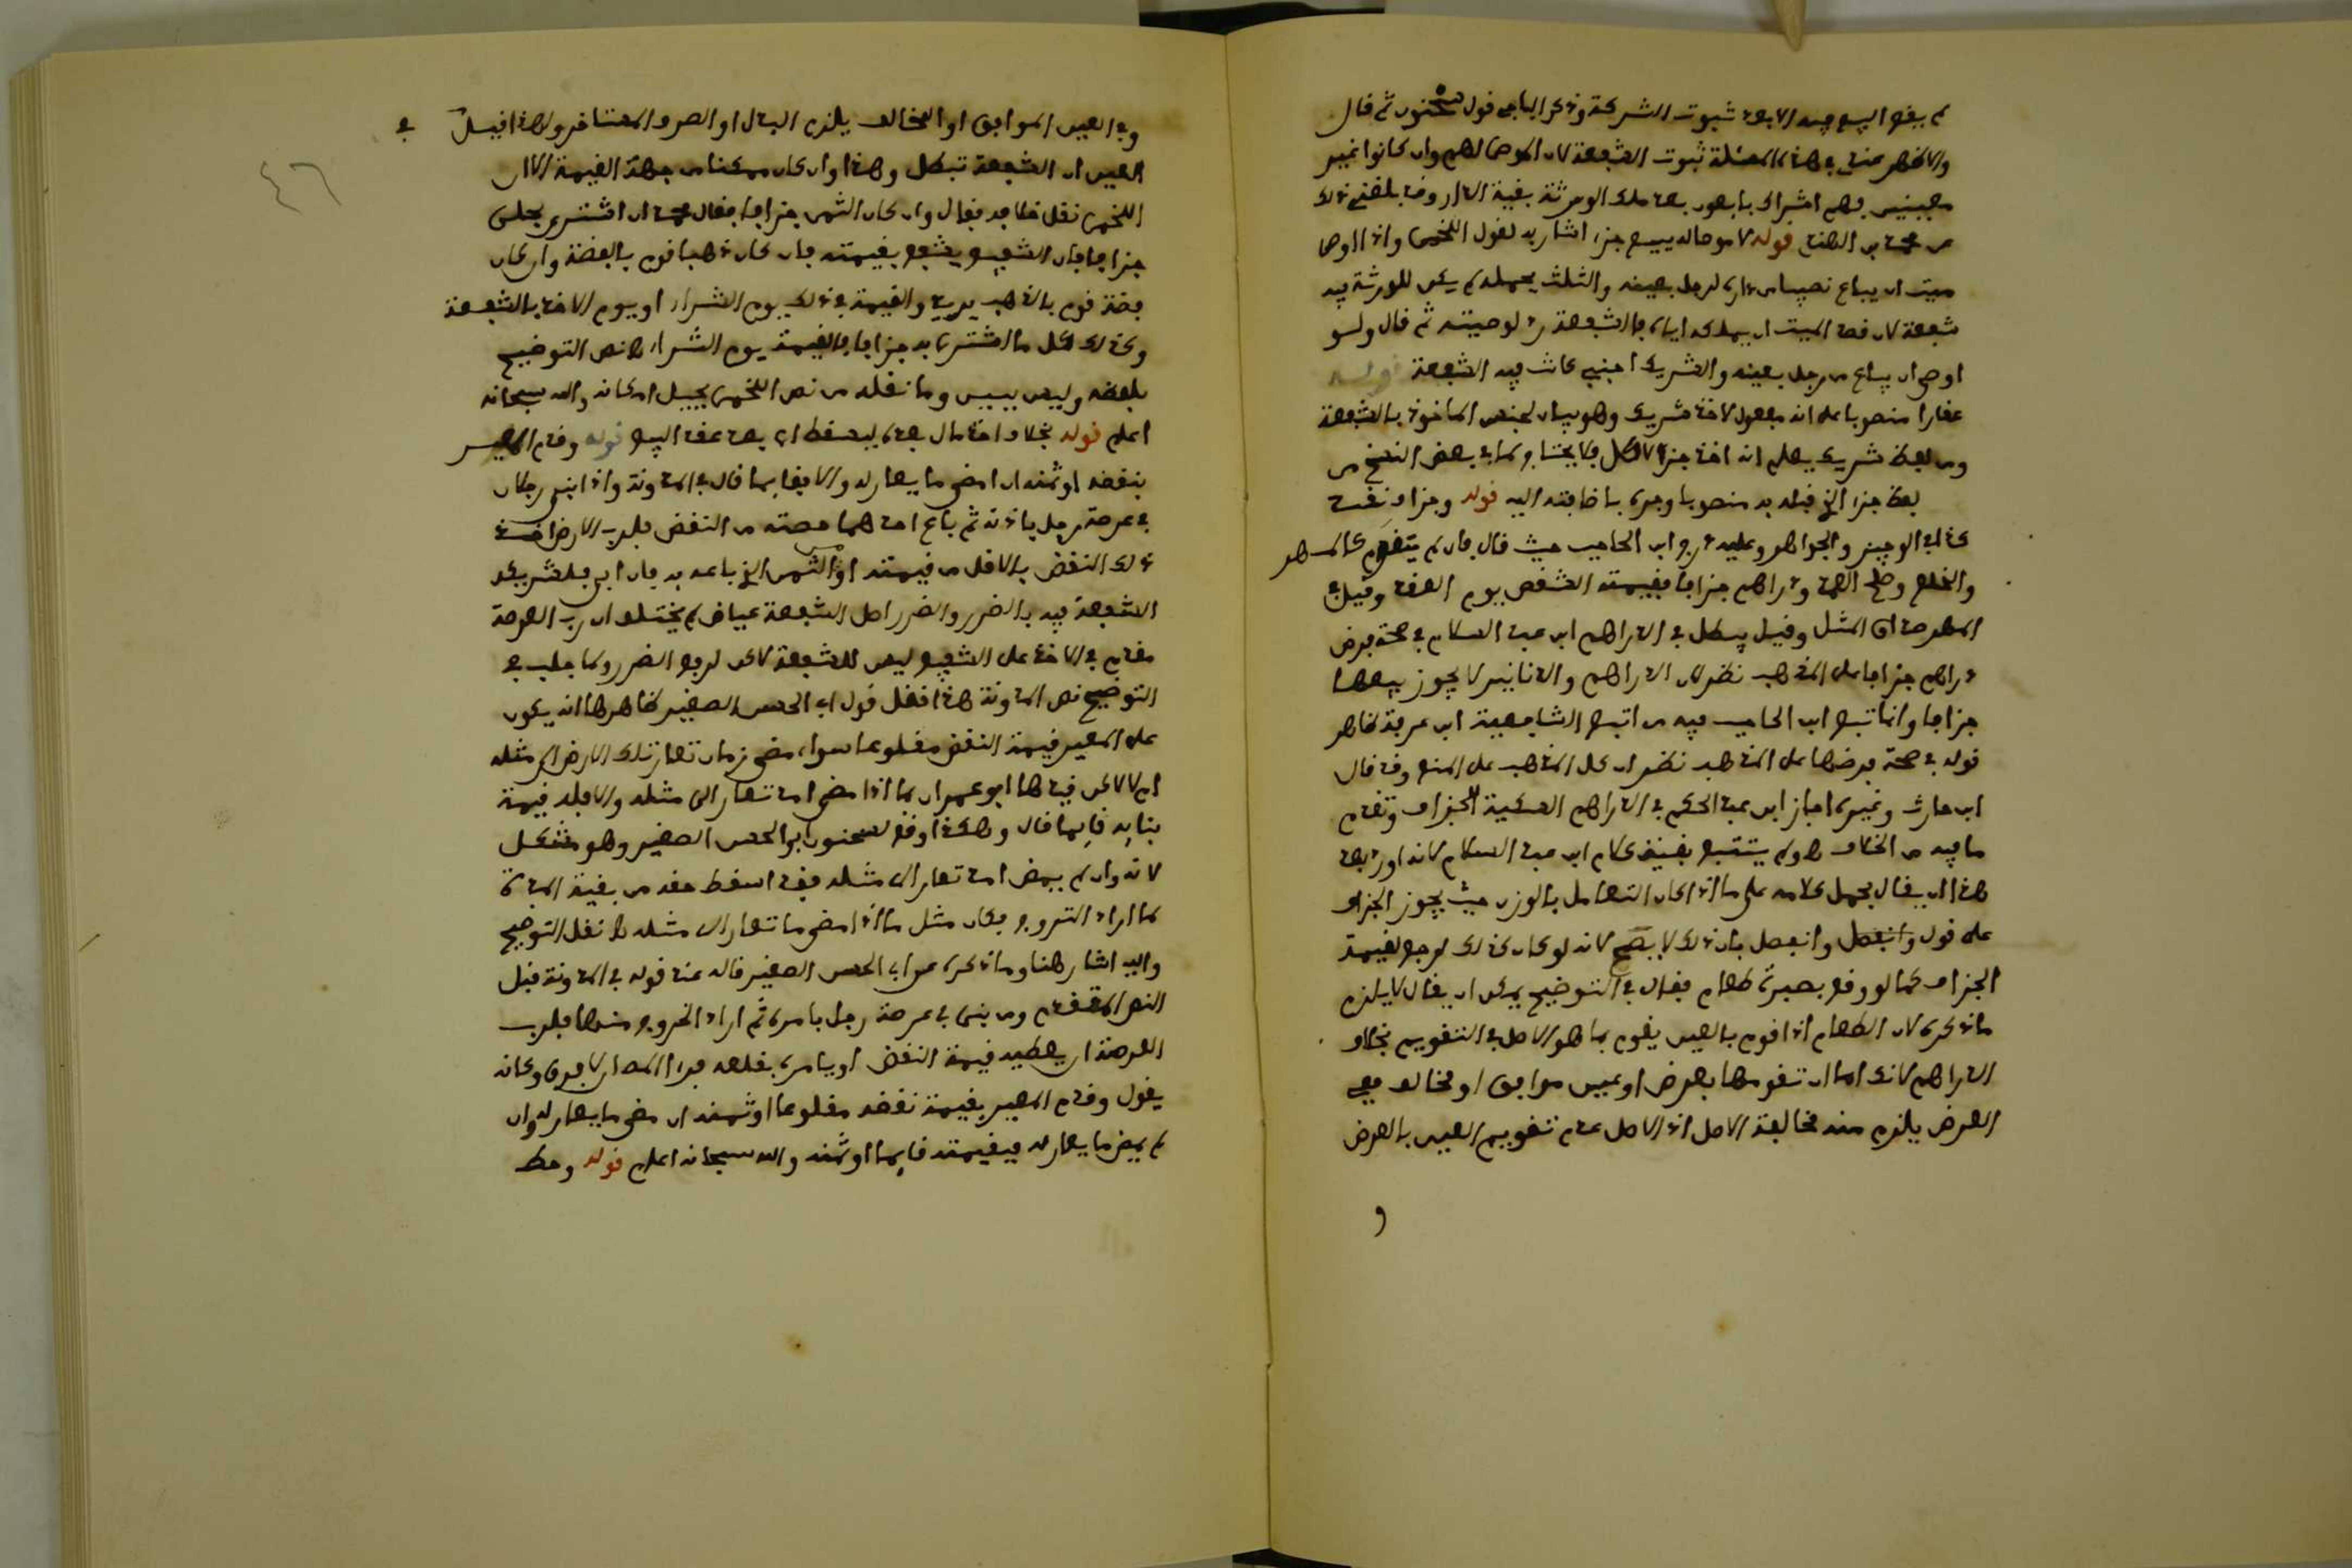 لم يقع البيع فيه الا بعد ثبوت الشركة وذكر الباجي قول سحنون ثم قال
والاظهر عندي في هذه المسئلة ثبوت الشفعة لان الموصى لهم وان كانوا غير
معينين فهم اشراك بايعون بعد ملك الورثة بقية الدار وقد بلغني ذلك
عن قوله لا موصى له ببيع جزء اشار به لقول اللخمي واذا اوصى
ميت ان يباع نصيب من داره لرجل بعينه والثلث يحمله لم يكن للورثة فيه
شفعة لان قصد الميت ان يملكه اياه فالشفعة رد لوصيته ثم قال ولو
اوصى ان يباع من رجل بعينه والشريك اجنبي كانت فيه الشفعة قوله
عقارا منصوبا على انه مفعول لاخذ شريك وهو بيان لجنس الماخوذ بالشفعة
ومن لفظ شريك يعلم انه اخذ جزءا لا كل كما في بعض النسخ من
لفظ جزء الخ قبله به منصوبا وجره باضافته اليه قوله وجزاف نقد
كذا في الوجيز والجواهر وعليه درج ابن الحاجب حيث قال فان لم يتقوم كالمهر
والخلع وصلح العمد ودراهم جزافا فقيمة الشقص يوم العقد وقيل في
المهر صداق المثل وقيل يبطل في الدراهم ابن عبد السلام في صحة فرض
دراهم جزافا على المذهب نظر لان الدراهم والدنانير لا يجوز بيعها
جزافا وانما تبع ابن الحاجب فيه من اتبع الشافعية ابن عرفة ظاهر
قوله في صحة فرضها على المذهب نظر ان كل المذهب على المنع وقد قال
ابن حارث وغيره اجاز ابن عبد الحكم في الدراهم العددية الجزاف وتقدم
ما فيه من الخلاف ولم يتتبع بقية كلام ابن عبد السلام لانه اورد بعد
هذا ان يقال يحمل كلامه على ما اذا كان التعامل بالوزن حيث يجوز الجزاف
على قول وانفصل وانفصل بان ذلك لا يصح لانه لو كان كذلك لرجع لقيمة
الجزاف كما لو وقع بصبرة طعام فقال في التوضيح يمكن ان يقال لا يلزم
ما ذكره لان الطعام اذا قوم بالعين يقوم بما هو الاصل في التقويم بخلاف
الدراهم لانك اما ان تقومها بعرض او عين موافق او مخالف ففي
العرض يلزم منه مخالفة الاصل اذ الاصل عدم تقويم العين بالعرض
و
وفي العين الموافق او المخالف يلزم البدل او الصرف المتاخر ولهذا قيل في
العين ان الشفعة تبطل وهذا وان كان ممكنا من جهة القيمة الا ان
اللخمي نقل خلافه فقال وان كان الثمن جزافا فقال ان اشترى بحلي
جزافا فان الشفيع يشفع بقيمته فان كان ذهبا قوم بالفضة وان كان
فضة قوم بالذهب يريد والقيمة في ذلك يوم الشراء او يوم الاخذ بالشفعة
وكذلك كل ما اشترى به جزافا فالقيمة يوم الشراء نص التوضيح
بلفظه وليس ببين وما نقله من نص اللخمي يحيل امكانه والله سبحانه
اعلم قوله بخلاف اخذ مال بعده ليسقط اي بعد عقد البيع قوله وقدم المعير
بنقضه او ثمنه ان مضى ما يعار له والا فقائما قال في المدونة واذا بنى رجلان
في عرصة رجل باذنه ثم باع احدهما حصته من النقض فلرب الارض اخذ
ذلك النقض بالاقل من قيمته او الثمن الذي باعه به فان ابى فلشريكه
الشفعة فيه بالضرر والضرر اصل الشفعة عياض لم يختلف ان رب العرصة
مقدم في الاخذ على الشفيع ليس للشفعة لكن لرفع الضرر ولما جلب في
التوضيح نص المدونة هذا نقل قول ابي الحسن الصغير ظاهرها انه يكون
على المعير قيمة النقض مقلوعا سواء مضى زمان تعار تلك الارض الى مثله
ام لا لكن قيدها ابو عمران بما اذا مضى امد تعار الى مثله والا فله قيمة
بنائه قائما قال وهكذا وقع لسحنون ابو الحسن الصغير وهو مشكل
لانه وان لم يمض امد تعار الى مثله فقد اسقط حقه من بقية المدة
لما اراد الخروج فكان مثل ما اذا مضى ما تعار الى مثله نقل التوضيح
واليه اشار هنا وما ذكره عن ابي الحسن الصغير قاله عند قوله في المدونة قبل
النص المتقدم ومن بنى في عرصة رجل بامره ثم اراد الخروج منها فلرب
العرصة ان يعطيه قيمة النقض او يامره بقلعه
يقول وقدم المعير بقيمة نقضه مقلوعا او ثمنه ان مضى ما يعار له وان
لم يمض ما يعار له فبقيمته قائما او ثمنه والله سبحانه اعلم قوله وحط
٤٦